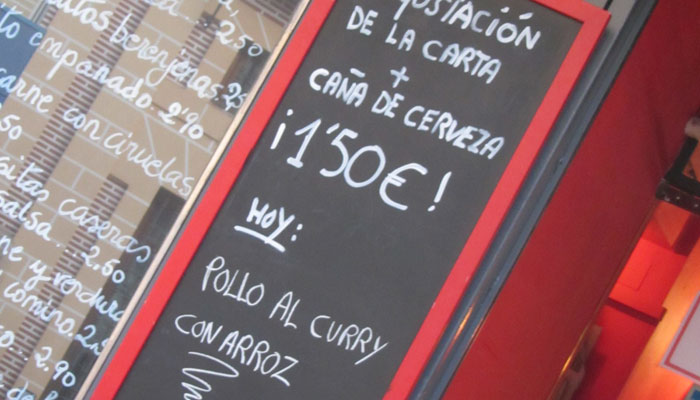 2.50
berenjenas 2,5
empanado 2,90
carne con ciruelas
50
caseras
salsa... 2.60
ne y verdura
comino 2,5
2.90
DE LA CARTA
+
CAÑA DE CERVEZA
¡1'50€!
HOY:
POLLO AL CURRY
CON ARROZ